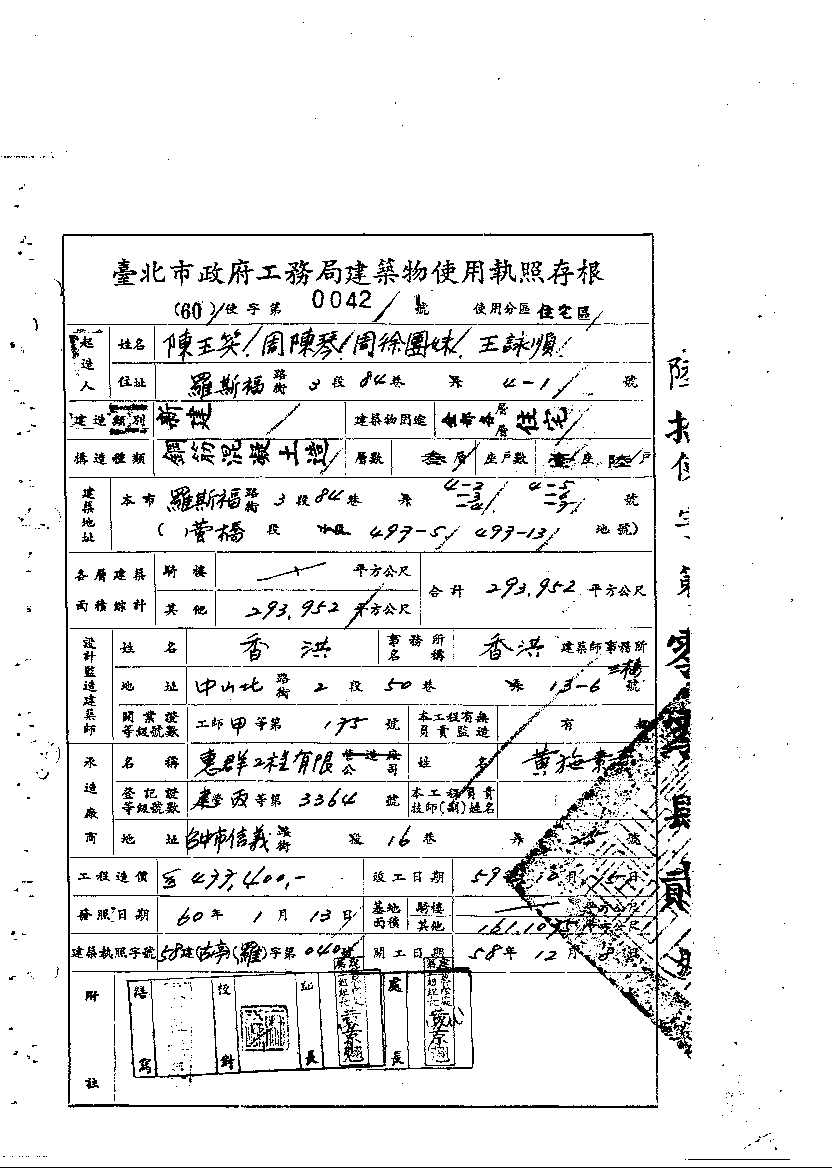 臺北市政府工務局建築物使用執照存根
(60)使字第 0042 號 使用分區 住宅區
起造人 姓名 陳玉笑 周陳琴 周徐團妹 王詠順
住址 羅斯福 路街 3 段 84 巷 弄 4-1 號
建造類別 新建 建築物用途 全部各層 住宅
構造種類 鋼筋混凝土造 層數 叁層 座戶數 壹座 陸戶
建築地址 本市 羅斯福 路街 3 段 84 巷 弄 4-2 -3 -4 4-5 -6 -7 號
( )營橋 段 小段 493-5 493-13 地號)
各層建築面積綜計 騎樓 平方公尺 合計 293.952 平方公尺
其他 293.952 平方公尺
設計監造建築師 姓名 香洪 事務所名稱 香洪 建築師事務所
地址 中山北 路街 2 段 50 巷 弄 13-6 號 三樓
開業證等級號數 工師甲等第 175 號 本工程有無負責監造 有
承造廠商 名稱 惠群工程有限 營造廠公司 姓名 黃施素
登記證等級號數 營丙等第 3364 號 本工程負責技師(副)姓名
地址 台中市信義 路街 段 16 巷 弄 25 號
工程造價 433,400.- 竣工日期 59 年 12 月 5 日
發照日期 60年 1月 13日 基地面積 騎樓 平方公尺
其他 161.1075 平方公尺
建築執照字號 58建(古亭)(羅)字第040號 開工日期 58年 12月 8日
附註 繕寫 校對 股長 處長
陸拾使字第零零肆貳號